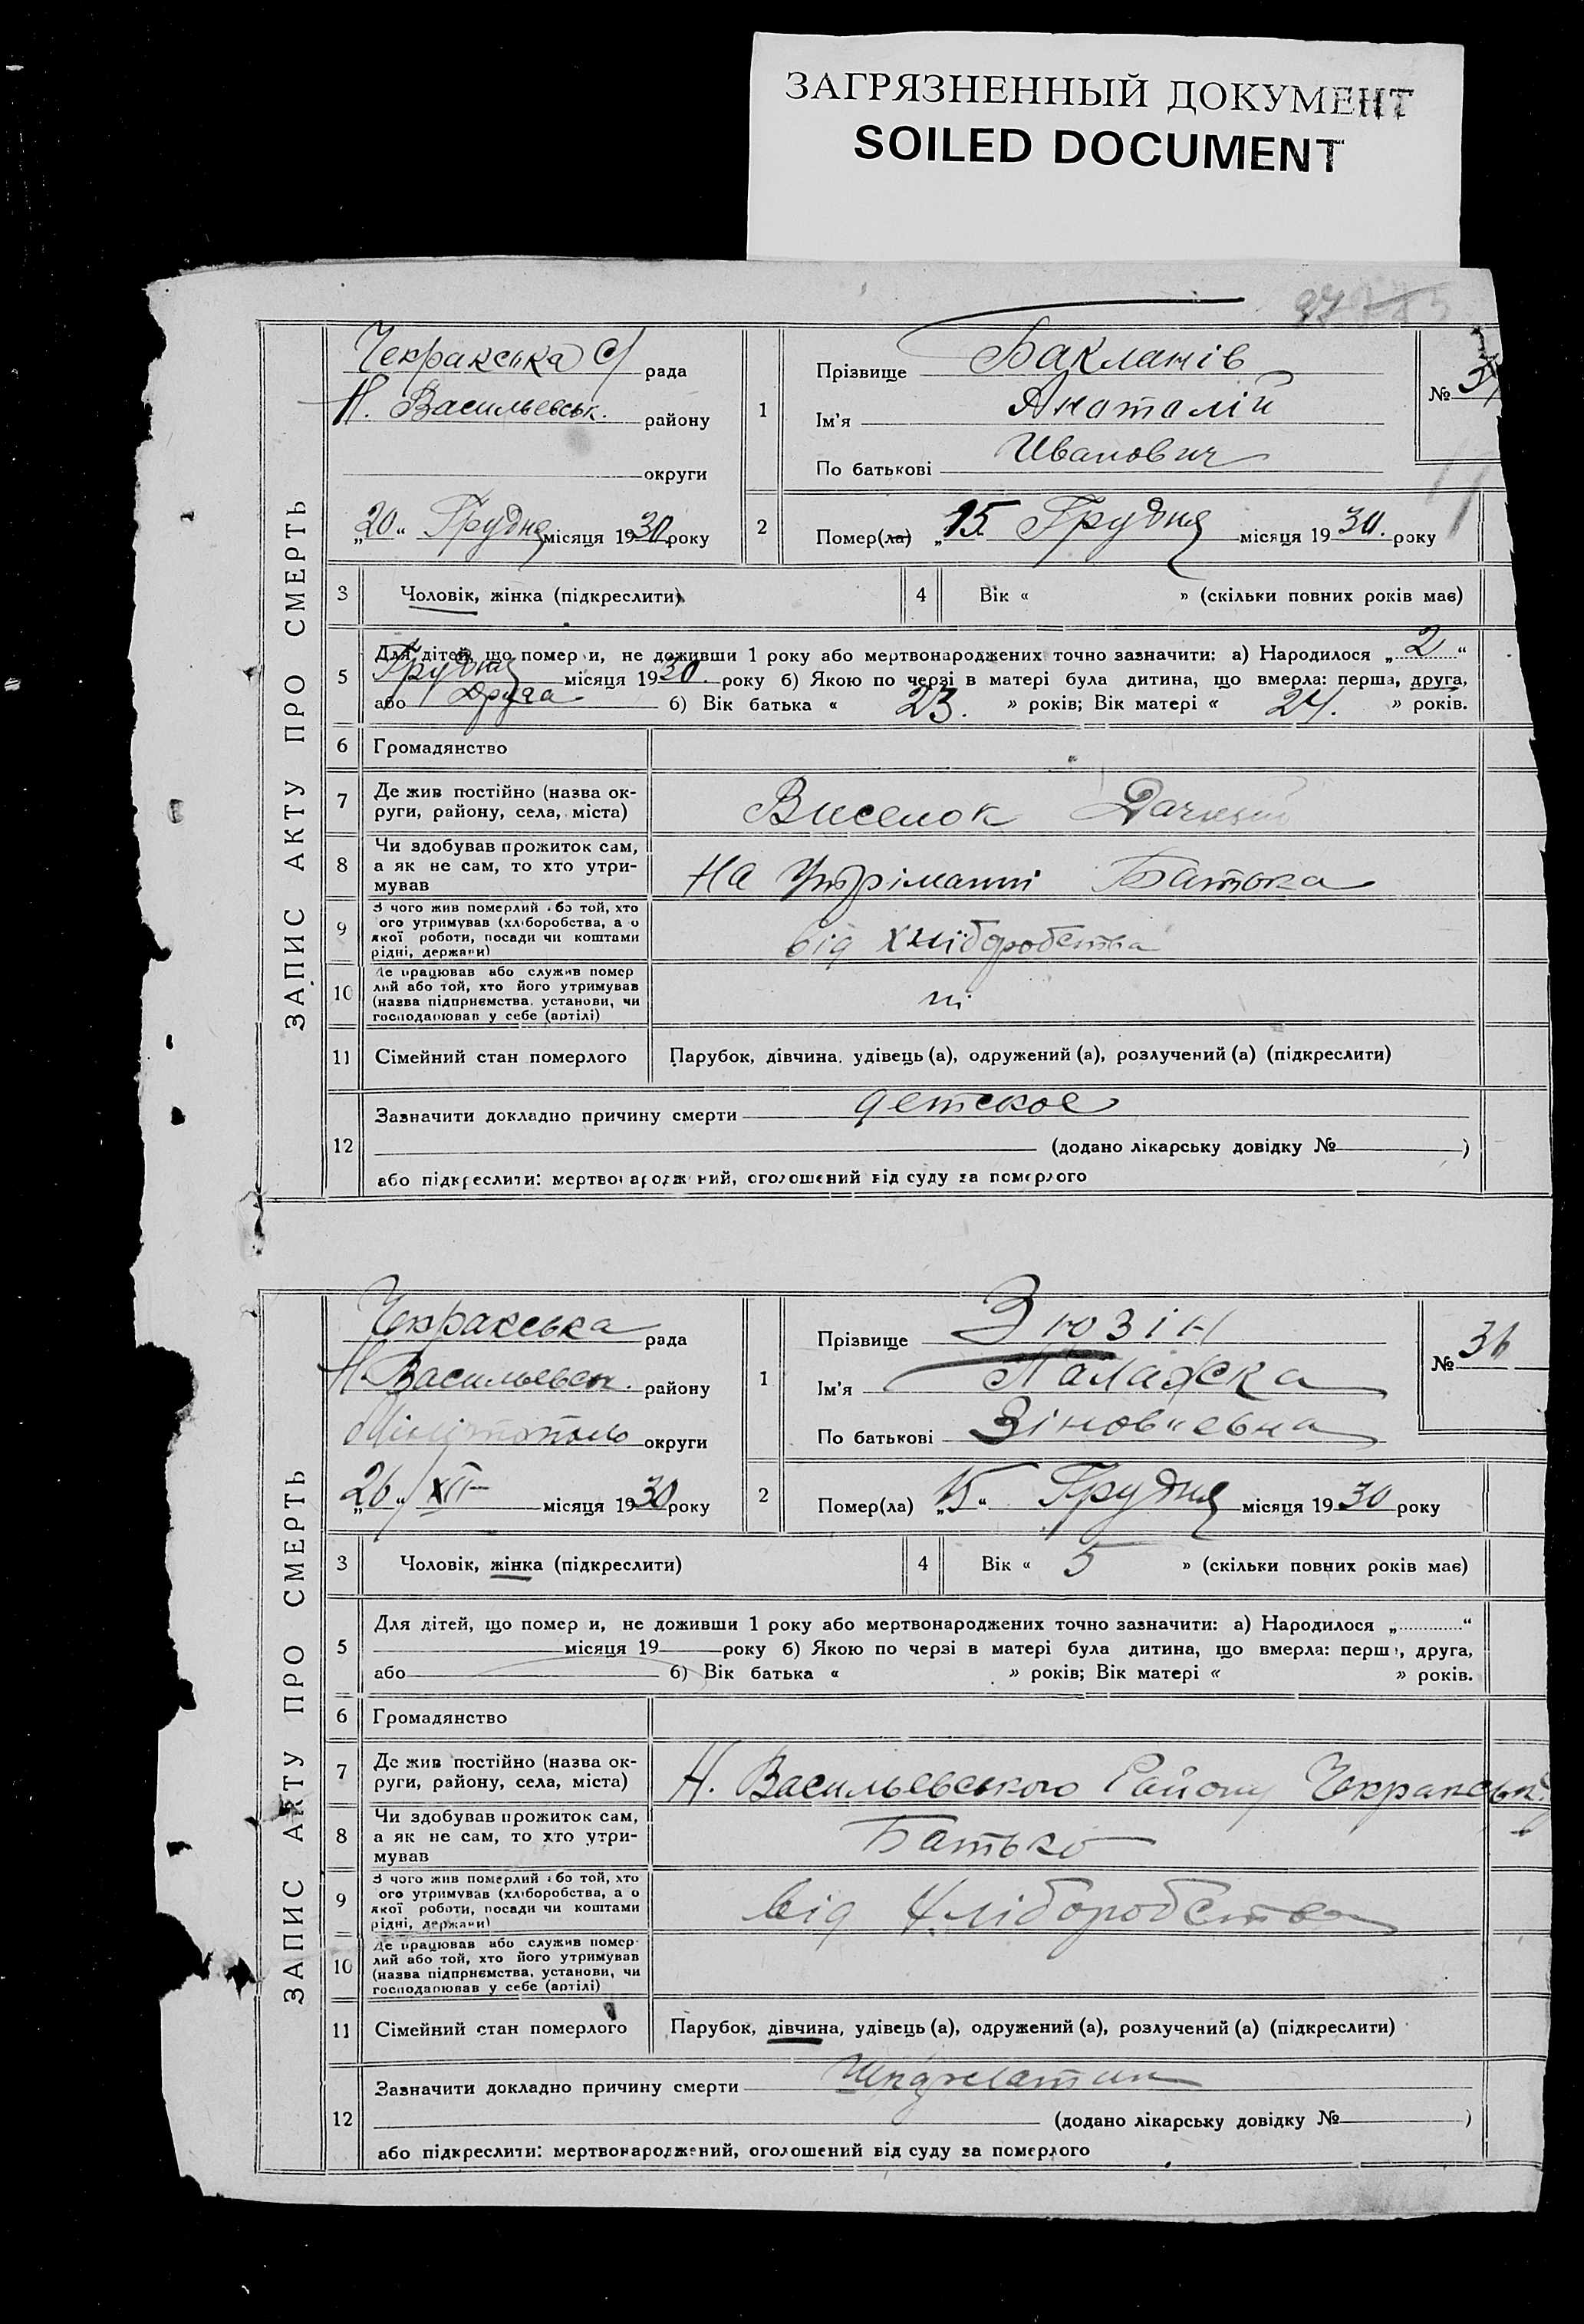 ЗАГРЯЗНЕННЫЙ ДОКУМЕНТ
SOILED DOCUMENT
ЗАПИС АКТУ ПРО СМЕРТЬ
Чекракська С/ рада
Н. Васильевськ. району
округи
„20“ Грудня місяця 1930 року
1
Прізвище Бакланів
Ім'я Анатолій
По батькові Иванович
№
2
Помер(ла) „15 Грудня місяця 1930. року
3 Чоловік, жінка (підкреслити)
4 Вік « » (скільки повних років має)
5 Для дітей, що помер и, не доживши 1 року або мертвонароджених точно зазначити: а) Народилося „2“
Грудня місяця 1930. року б) Якою по черзі в матері була дитина, що вмерла: перша, друга,
або Друга б) Вік батька « 23. » років; Вік матері « 24. » років.
6 Громадянство
7 Де жив постійно (назва ок-
руги, району, села, міста)
Виселок Дачний
8 Чи здобував прожиток сам,
а як не сам, то хто утри-
мував
На Утріманні Батька
9 З чого жив померлий або той, хто
ого утримував (хліборобства, а о
якої роботи, посади чи коштами
рідні, держави)
від хліборобства
10 Де працював або служив помер
лий або той, хто його утримував
(назва підприємства, установи, чи
господарював у себе (артілі)
ні
11 Сімейний стан померлого Парубок, дівчина, удівець (а), одружений (а), розлучений (а) (підкреслити)
12 Зазначити докладно причину смерти детское
(додано лікарську довідку № )
або підкреслити: мертвонароджений, оголошений від суду за померлого
ЗАПИС АКТУ ПРО СМЕРТЬ
Чекракська рада
Н Васильевськ. району
округи
„26“/XII місяця 1930 року
1
Прізвище Зюзін
Ім'я Палажка
По батькові Зіновьевна
№ 36
2
Помер(ла) „15“ Грудня місяця 1930 року
3 Чоловік, жінка (підкреслити)
4 Вік « 5 » (скільки повних років має)
5 Для дітей, що помер и, не доживши 1 року або мертвонароджених точно зазначити: а) Народилося „ “
місяця 19 року б) Якою по черзі в матері була дитина, що вмерла: перш , друга,
або б) Вік батька « » років; Вік матері « » років.
6 Громадянство
7 Де жив постійно (назва ок-
руги, району, села, міста)
Н. Васильевського Району
8 Чи здобував прожиток сам,
а як не сам, то хто утри-
мував
Батько
9 З чого жив померлий або той, хто
ого утримував (хліборобства, а о
якої роботи, посади чи коштами
рідні, держави)
від Хліборобства
10 Де працював або служив помер-
лий або той, хто його утримував
(назва підприємства, установи, чи
господарював у себе (артілі)
11 Сімейний стан померлого Парубок, дівчина, удівець (а), одружений (а), розлучений (а) (підкреслити)
12 Зазначити докладно причину смерти
(додано лікарську довідку № )
або підкреслити: мертвонароджений, оголошений від суду за померлого